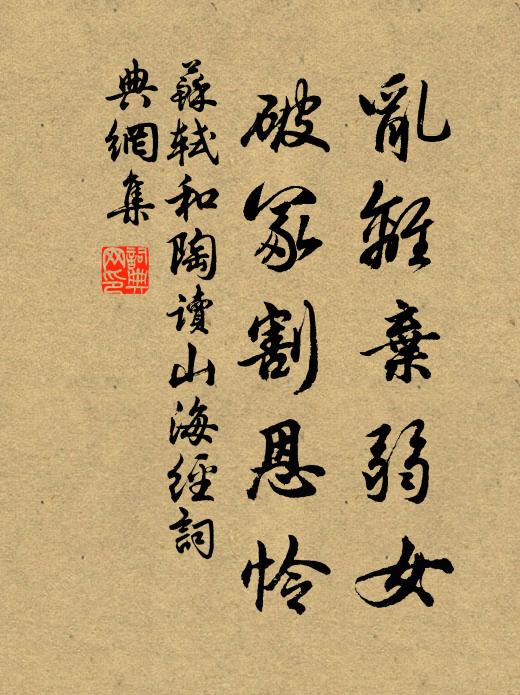 亂離棄弱女
破冢割恩怜
蘇軾和陶讀山海經詞
典網集
詞典网印